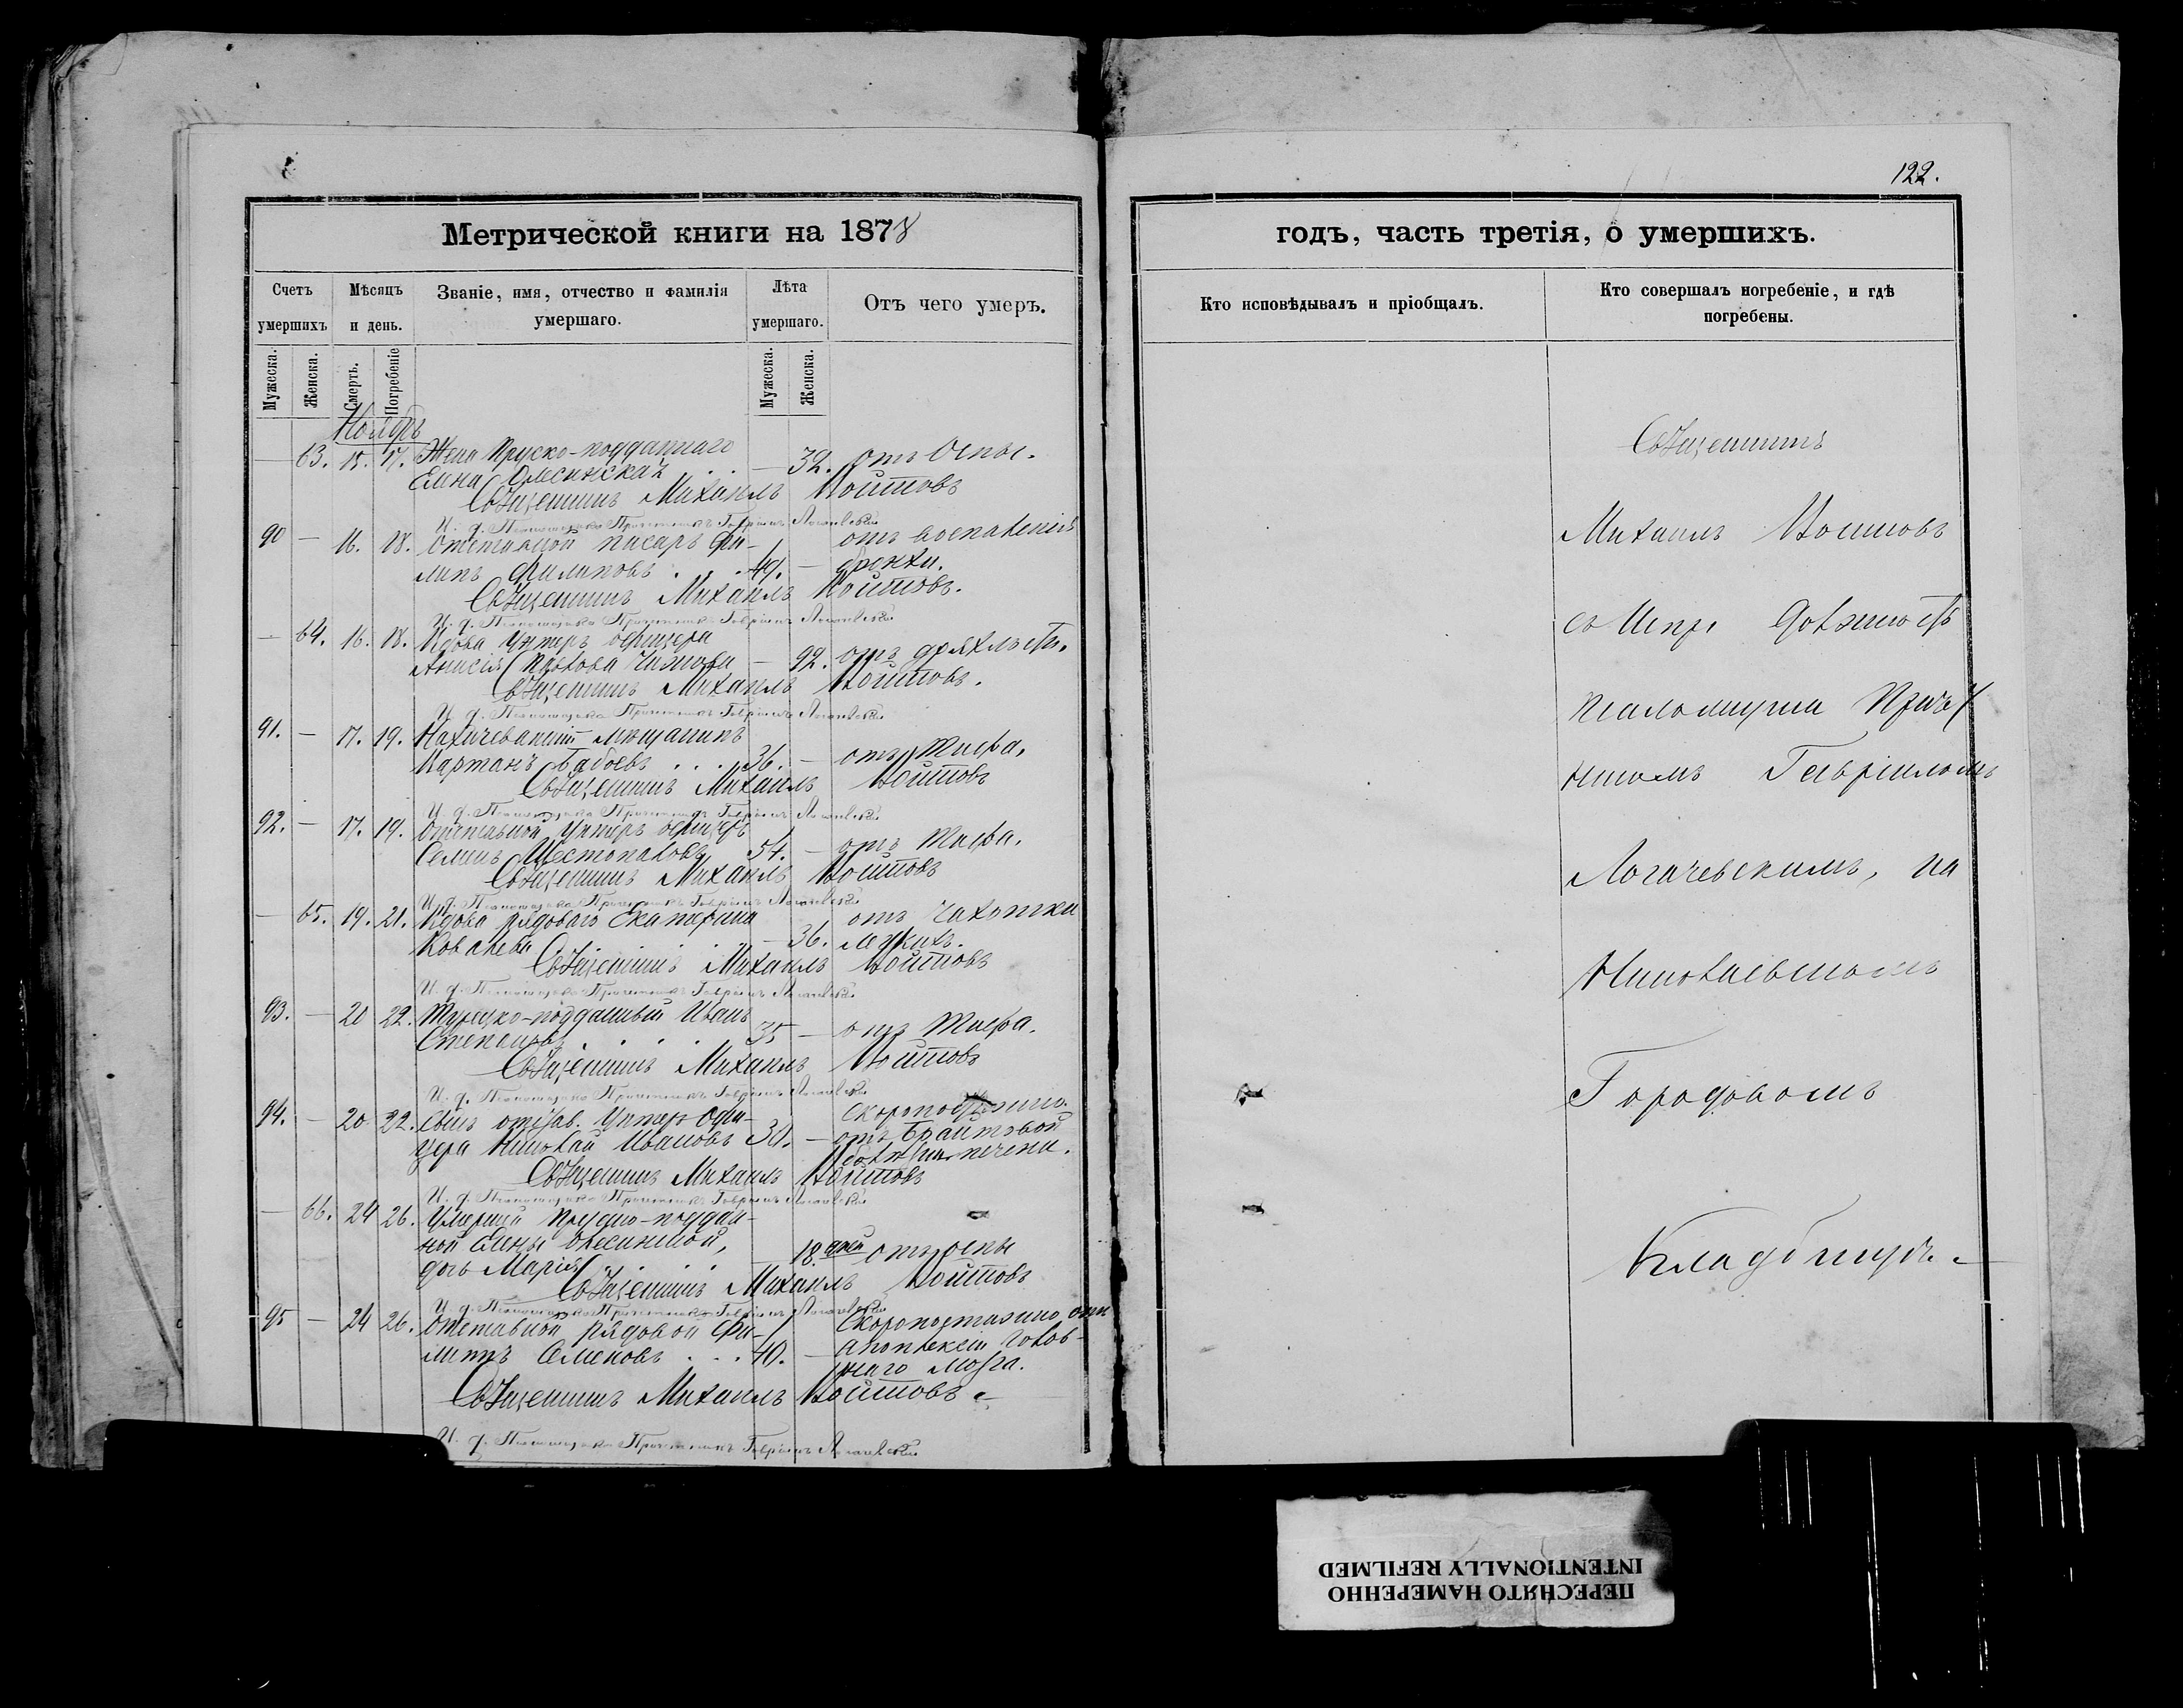 122.
Метрической книги на 1878
годъ, часть третія, о умершихъ.
Счетъ умершихъ
Мѣсяцъ и день.
Званіе, имя, отчество и фамилія умершаго.
Лѣта умершаго.
Отъ чего умеръ.
Кто исповѣдывалъ и пріобщалъ.
Кто совершалъ погребеніе, и гдѣ погребены.
Мужеска. Женска. Смерть. Погребеніе Мужеска. Женска.
Ноябрь
— 63. 15. 17. Жена Пруско-подданнаго
Елена Олесинская . . — 32. отъ Оспы.
Священникъ Михаилъ Войтовъ
И. д. Псаломщика Причетникъ Гавріилъ Логачевскій
90 — 16. 18. Отставной писарь Фи-
липъ Филиповъ . . . 49. — отъ воспаленія
бронхи.
Священникъ Михаилъ Войтовъ.
И. д. Псаломщика Причетникъ Гавріилъ Логачевскій
— 64. 16. 18. Вдова Унтеръ офицера
Анисія — 92. отъ дряхлости.
Священникъ Михаилъ Войтовъ.
И. д. Псаломщика Причетникъ Гавріилъ Логачевскій
91. — 17. 19. Нахичеванскій мещанинъ
. . . 36. — отъ Тифа.
Священникъ Михаилъ Войтовъ
И. д. Псаломщика Причетникъ Гавріилъ Логачевскій
92. — 17. 19. Отставной Унтеръ офицеръ
Семенъ Шестопаловъ 54. — отъ Тифа.
Священникъ Михаилъ Войтовъ
И. д. Псаломщика Причетникъ Гавріилъ Логачевскій
— 65. 19. 21. Вдова рядоваго Екатерина
Ковалева . . . — 36. отъ Чахотки
легкихъ.
Священникъ Михаилъ Войтовъ
И. д. Псаломщика Причетникъ Гавріилъ Логачевскій
93. — 20 22. Турецко-подданный Иванъ
Степановъ . . . 35 — отъ Тифа.
Священникъ Михаилъ Войтовъ
И. д. Псаломщика Причетникъ Гавріилъ Логачевскій
94. — 20 22. Сынъ отстав. Унтеръ Офи-
цера Николай Ивановъ 30. — Скоропостижно
отъ Брайтовой
болѣзни печени.
Священникъ Михаилъ Войтовъ
И. д. Псаломщика Причетникъ Гавріилъ Логачевскій
— 66. 24 26. Умершей Прусско-поддан-
ной Елены Олесинской,
дочь Марія . . . — 18. дней отъ оспы
Священникъ Михаилъ Войтовъ
И. д. Псаломщика Причетникъ Гавріилъ Логачевскій
95 — 24 26. Отставной рядовой Фи-
липъ Семеновъ . . . 40. — Скоропостижно отъ
апоплексіи голов-
наго мозга.
Священникъ Михаилъ Войтовъ.
И. д. Псаломщика Причетникъ Гавріилъ Логачевскій
Священникъ
Михаилъ Войтовъ
съ Испр. Должность
псаломщика Причет
никомъ Гавріиломъ
Логачевскимъ, на
Николаевскомъ
Городовомъ
Кладбищѣ.
ПЕРЕСНЯТО НАМЕРЕННО
INTENTIONALLY REFILMED